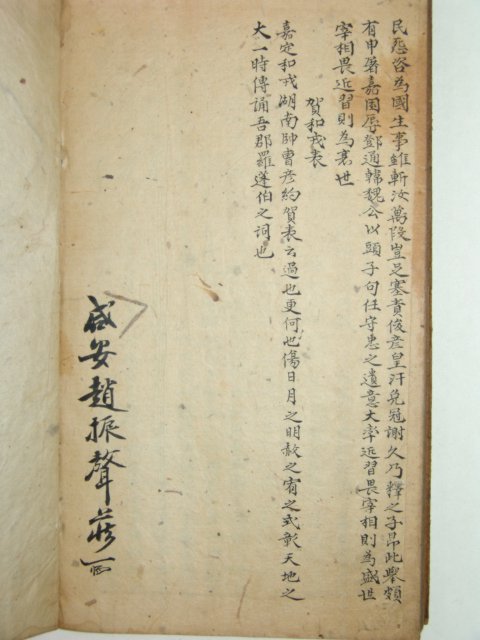 民怨咨為國生事雖斬汝萬段豈足塞責俊彦皇汗免冠謝久乃釋之子昂此舉頗
有申屠嘉困辱鄧通韓魏公以頭子句任守忠之遺意大率近習畏宰相則為盛世
宰相畏近習則為衰世
賀和戎表
嘉定和戎湖南帥曹彦約賀表云過也更何也傷日月之明赦之宥之式彰天地之
大一時傳誦吾郡羅蓬伯之詞也
咸安趙振聲莊